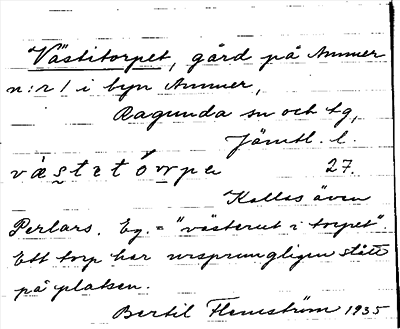 Västitorpet, gård på Ammer
n:r 1 i byn Ammer,
Ragunda sn och tg,
Jämtl. l.
27.
Kallas även
Perlars. Eg. = "västerut i torpet"
Ett torp har ursprungligen stått
på platsen.
Bertil Flemström 1935